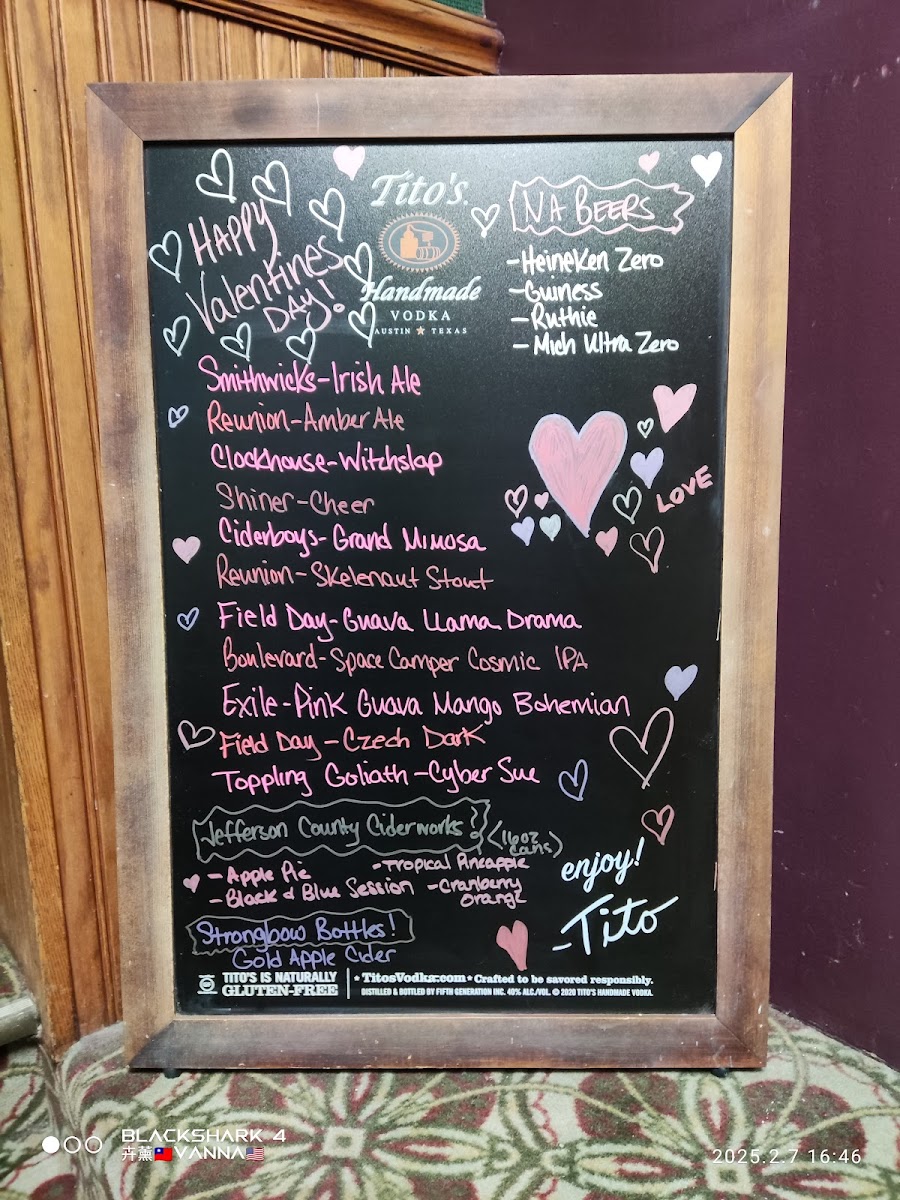 HAPPY
Valentines
DAY!
Tito's
Handmade
VODKA
AUSTIN ★ TEXAS
NA BEERS
-Heineken Zero
-Guiness
-Ruthie
-Mich Ultra Zero
Smithwicks-Irish Ale
Reunion-Amber Ale
Clockhouse-Witchslap
Shiner-Cheer
Ciderboys-Grand Mimosa
Reunion-Skelenaut Stout
Field Day-Guava Llama Drama
Boulevard-Space Camper Cosmic IPA
Exile-Pink Guava Mango Bohemian
Field Day-Czech Dark
Toppling Goliath-Cyber Sue
LOVE
Jefferson County Ciderworks! <16oz cans>
-Apple Pie -Tropical Pineapple
-Black & Blue Session -Cranberry Orange
Strongbow Bottles!
Gold Apple Cider
enjoy!
-Tito
TITO'S IS NATURALLY
GLUTEN-FREE
★ TitosVodka.com ★ Crafted to be savored responsibly.
DISTILLED & BOTTLED BY FIFTH GENERATION INC. 40% ALC./VOL. © 2020 TITO'S HANDMADE VODKA.
BLACKSHARK 4
卉薰🇹🇼VANNA🇺🇸
2025.2.7 16:46